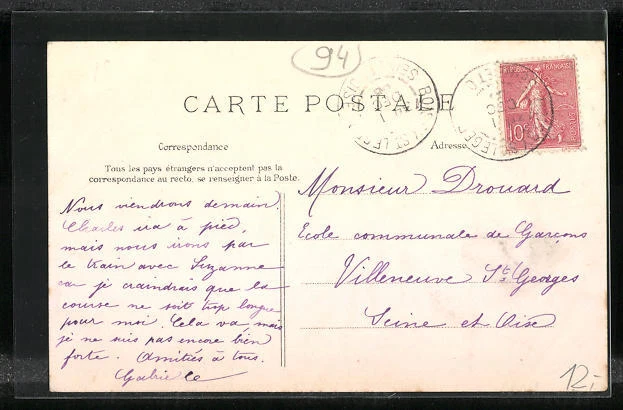 94
CARTE POSTALE
Correspondance
Adresse
Tous les pays étrangers n'acceptent pas la
correspondance au recto, se renseigner à la Poste.
REPUBLIQUE FRANÇAISE
10c
POSTES
Nous viendrons demain.
Charles ira à pied,
mais nous irons par
le train avec Suzanne
car je craindrais que la
course ne soit trop longue
pour moi. Cela va, mais
je ne suis pas encore bien
forte. Amitiés à tous.
Gabrielle
Monsieur Drouard
Ecole communale de Garçons
Villeneuve St Georges
Seine et Oise
12,-